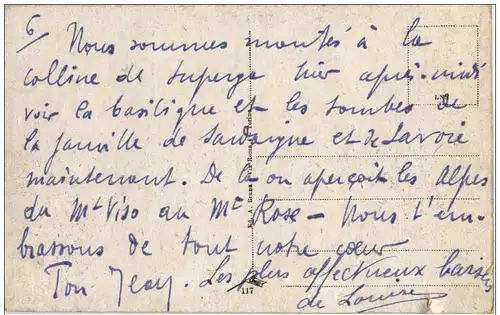 6
Nous sommes montés à la
colline de Superga hier après-midi
voir la basilique et les tombes de
la famille de Sardaigne et de Savoie
maintenant. De là on aperçoit les Alpes
du Mt Viso au Mt Rose — Nous t'em-
brassons de tout notre cœur
Ton Jean. Les plus affectueux baisers
de Louise
117